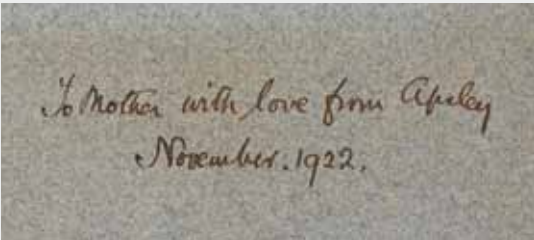 To Mother with love from Apsley
November. 1922.